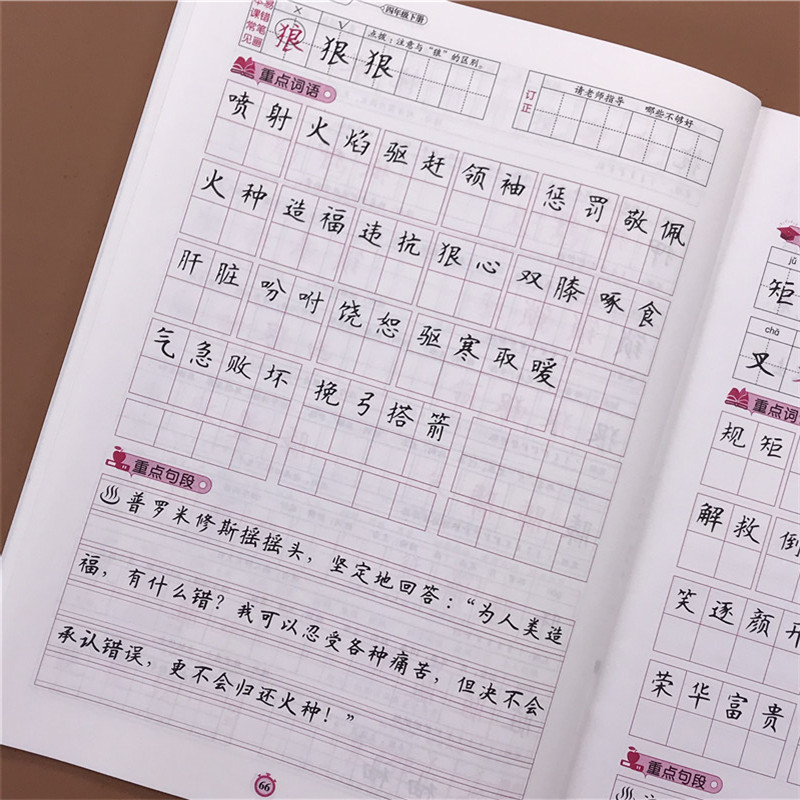 四年级下册
本课常见
易错笔画
× √
狼 狠 狠
点拨：注意与“狼”的区别。
订正
请老师指导 哪些不够好
重点词语
喷射 火焰 驱赶 领袖 惩罚 敬佩
火种 造福 违抗 狠心 双膝 啄食
肝脏 吩咐 饶恕 驱寒取暖
气急败坏 挽弓搭箭
重点句段
普罗米修斯摇摇头，坚定地回答：“为人类造
福，有什么错？我可以忍受各种痛苦，但决不会
承认错误，更不会归还火种！”
66
jǔ
矩
chà
叉
重点词
规矩
解救 倒
笑逐颜开
荣华富贵
重点句段